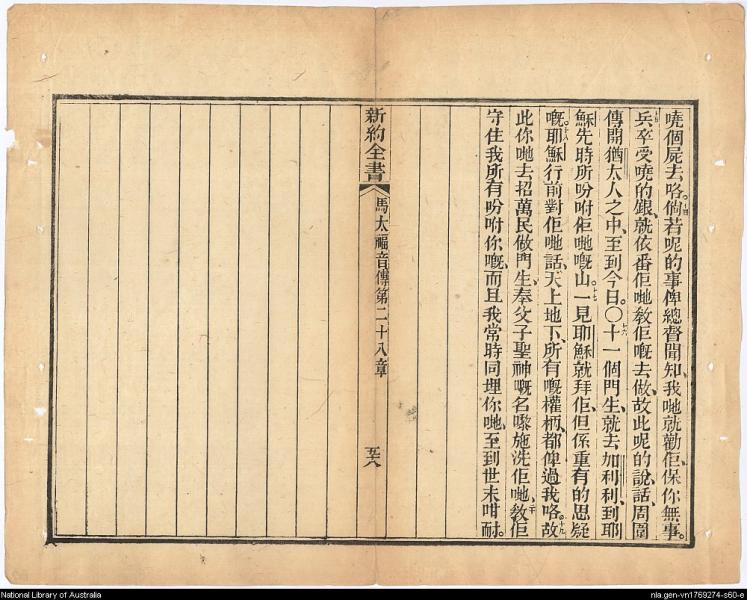 嘵個屍去咯。十四倘若呢的事俾總督聞知、我哋就勸佢保你無事。
十五兵卒受嘵的銀、就依番佢哋教佢嘅去做、故此呢的說話、周圍
傳開猶太人之中、至到今日。〇十六十一個門生、就去加利利、到耶
穌先時所吩咐佢哋嘅山。十七一見耶穌就拜佢、但係重有的思疑
嘅。十八耶穌行前對佢哋話、天上地下、所有嘅權柄、都俾過我咯。十九故
此你哋去招萬民做門生、奉父子聖神嘅名嚟施洗佢哋、二十教佢
守住我所有吩咐你嘅、而且我常時同埋你哋、至到世末咁耐。
新約全書
馬太福音傳第二十八章
五十八
National Library of Australia
nla.gen-vn1769274-s60-e